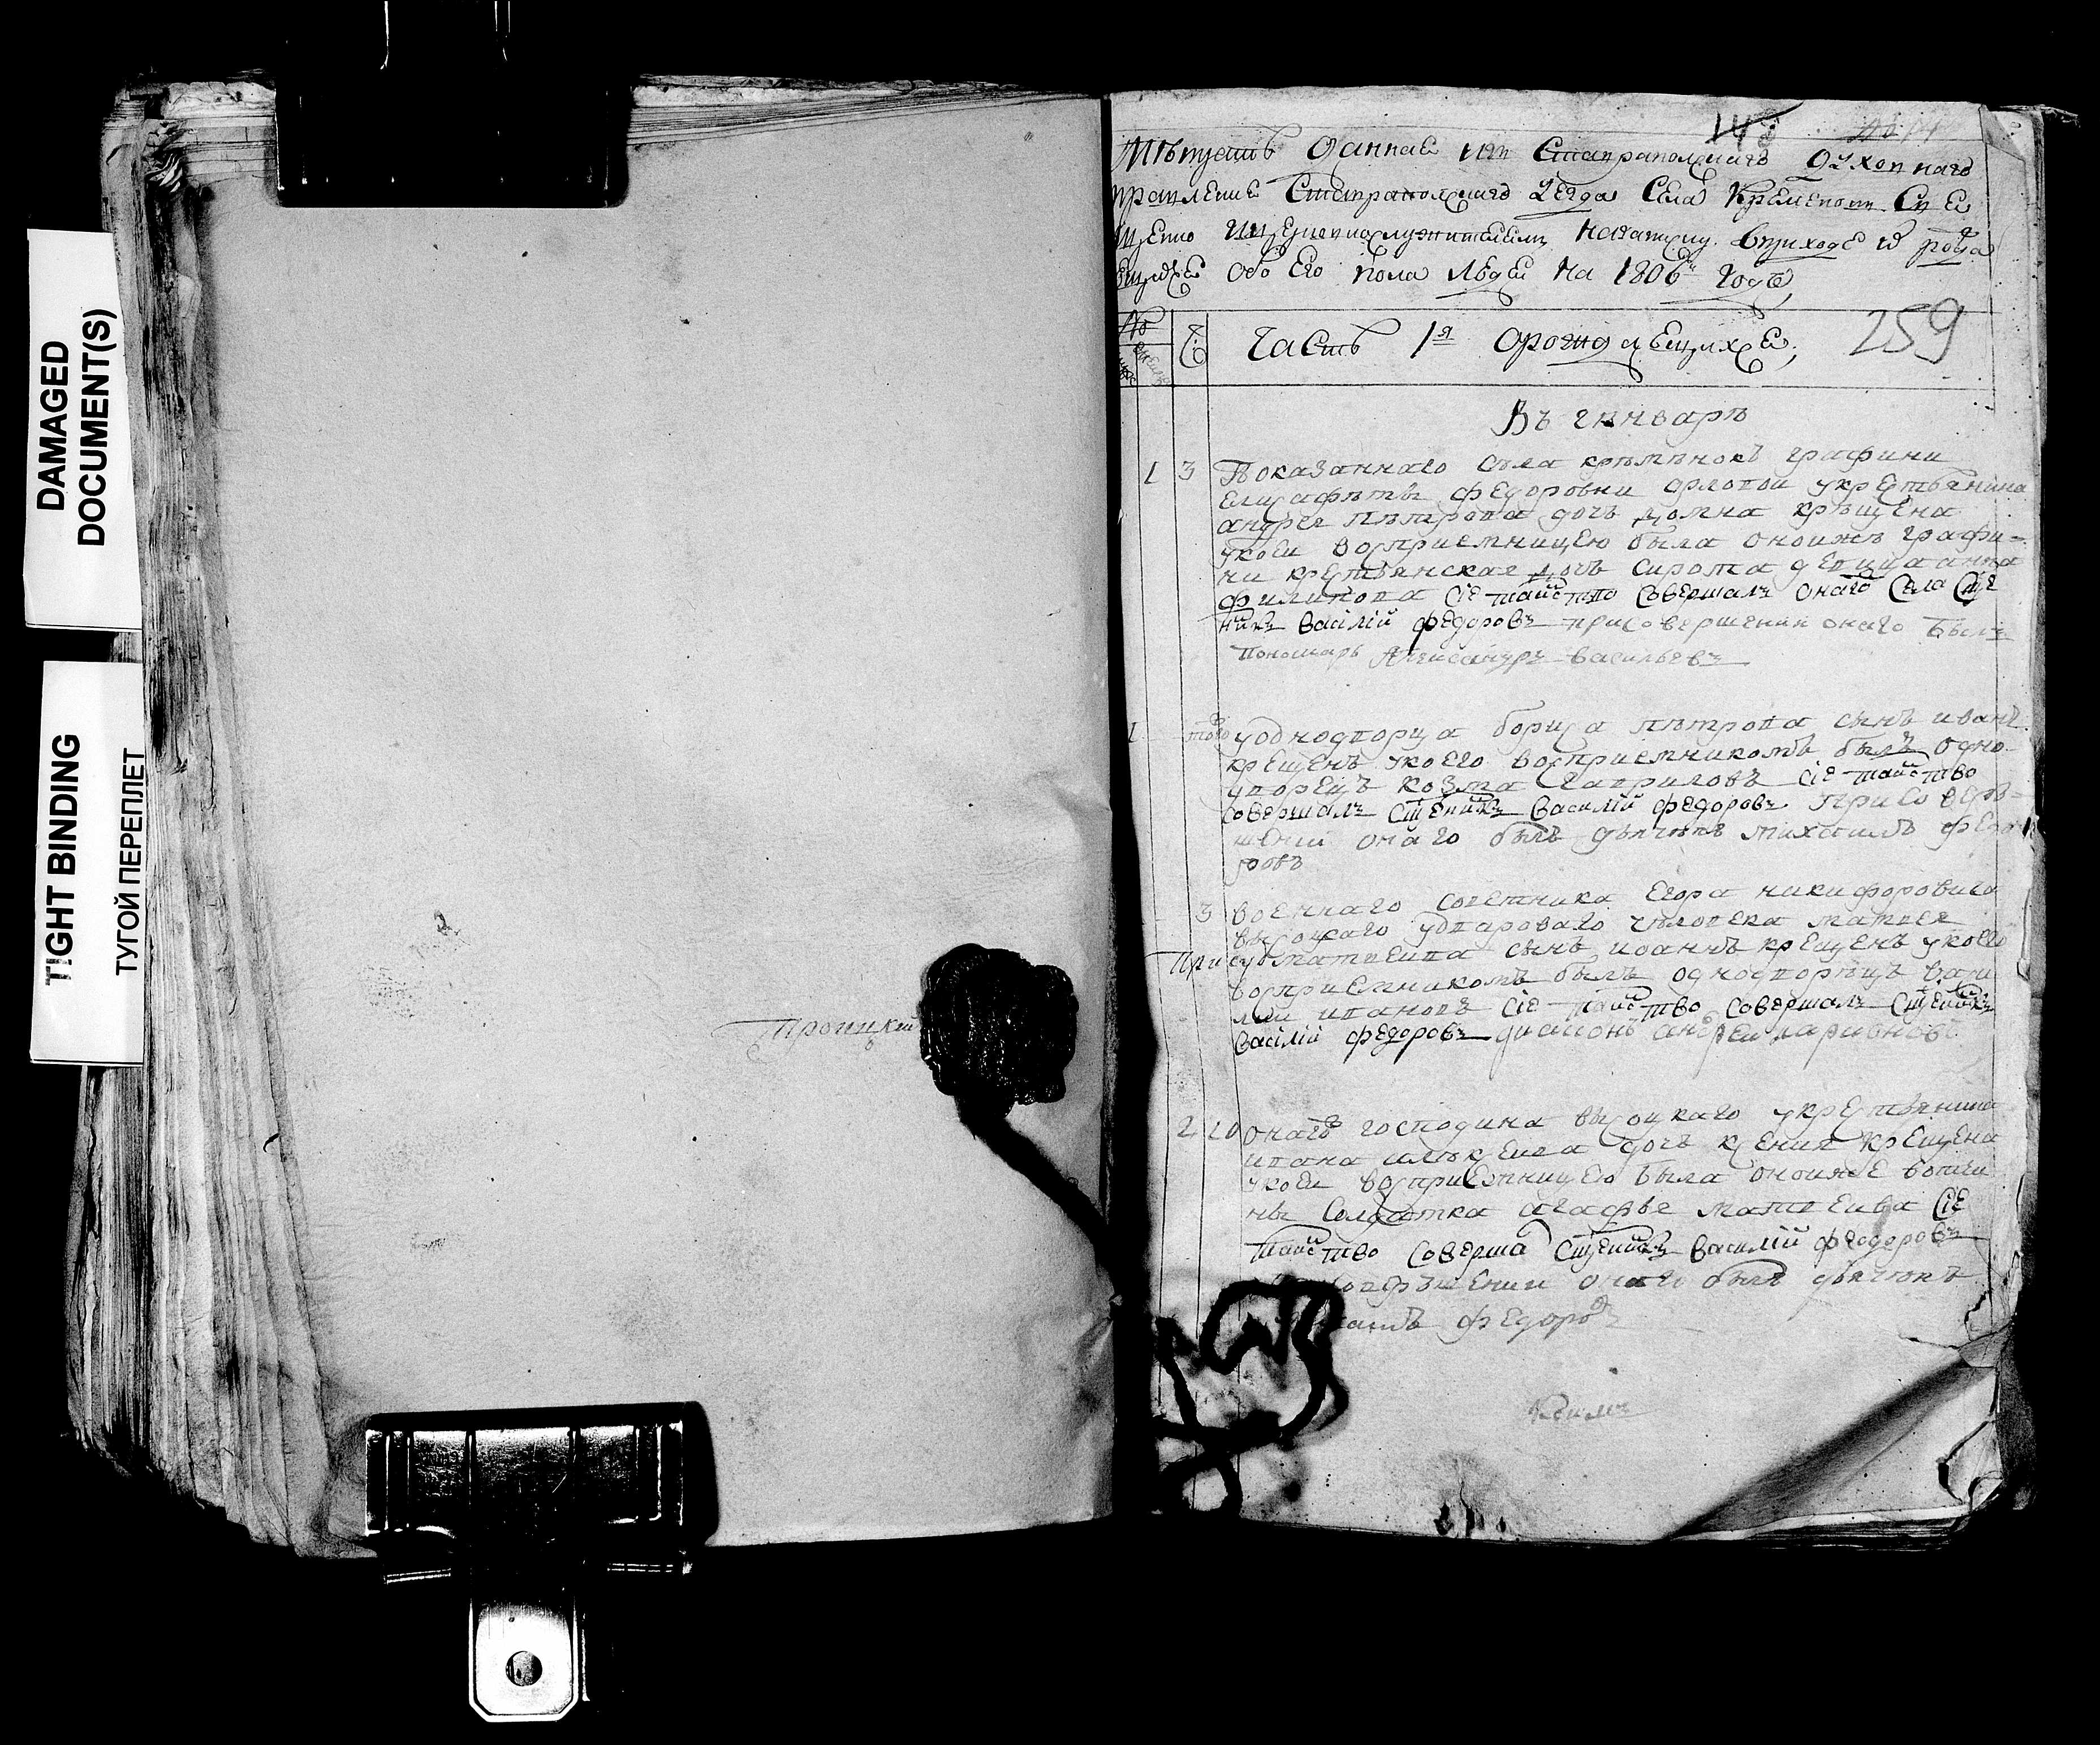 DAMAGED
DOCUMENT(S)
TIGHT BINDING
ТУГОЙ ПЕРЕПЛЕТ
Троицкий
143
данная из Ставропольскаго духовнаго
правления Ставропольскаго уезда села Кременокъ
на записку в приходе
обоего пола людей на 1806й годъ
№
Часть 1я о рождающихся
259
Въ генваръ
1 3 Показаннаго съла кръмънокъ графини
Елисафъты федоровни орловой у крестьянина
андрея пътрова дочь домна кръщена
у коей восприемницею была оноижъ графи=
ни крестьянская дочь сирота девица анна
филипова сiе таиство совершалъ онаго села
василiй федоровъ при совершении онаго былъ
пономарь Александръ васильевъ
1 того у однодворца бориса пътрова сынъ иванъ
крещенъ у коего восприемникомъ былъ одно
дворецъ козма гавриловъ сiе таиство
совершалъ сщенникъ василiй федоровъ при совер=
шенiи онаго былъ дьячекъ михаилъ федо
ровъ
3 военнаго советника егора никифоровича
высоцкаго у двороваго человека матвея
матвеива сынъ иоаннъ крещенъ у коего
восприемникомъ былъ однодворецъ васи
лий ивановъ сiе таиство совершалъ сщенникъ
василiй федоровъ диаконъ андреи лариновъ
2 10 онаго господина высоцкаго у крестьянина
ивана алъксеива дочь ксения крещена
у коеи восприемницею была оноиже вотчи
ны солдатка агафья матвеива сiе
таиство соверша сщенникъ василiй федоровъ
онаго былъ дьячекъ
федоровъ